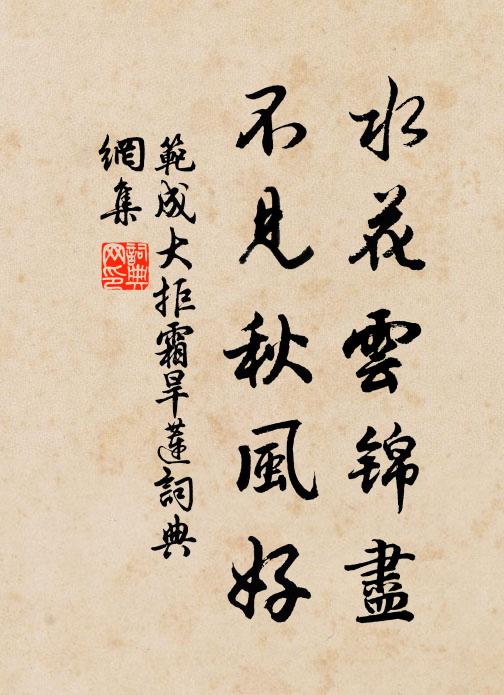 水花雲錦盡
不見秋風好
範成大拒霜旱蓮詞典
網集
詞典网印